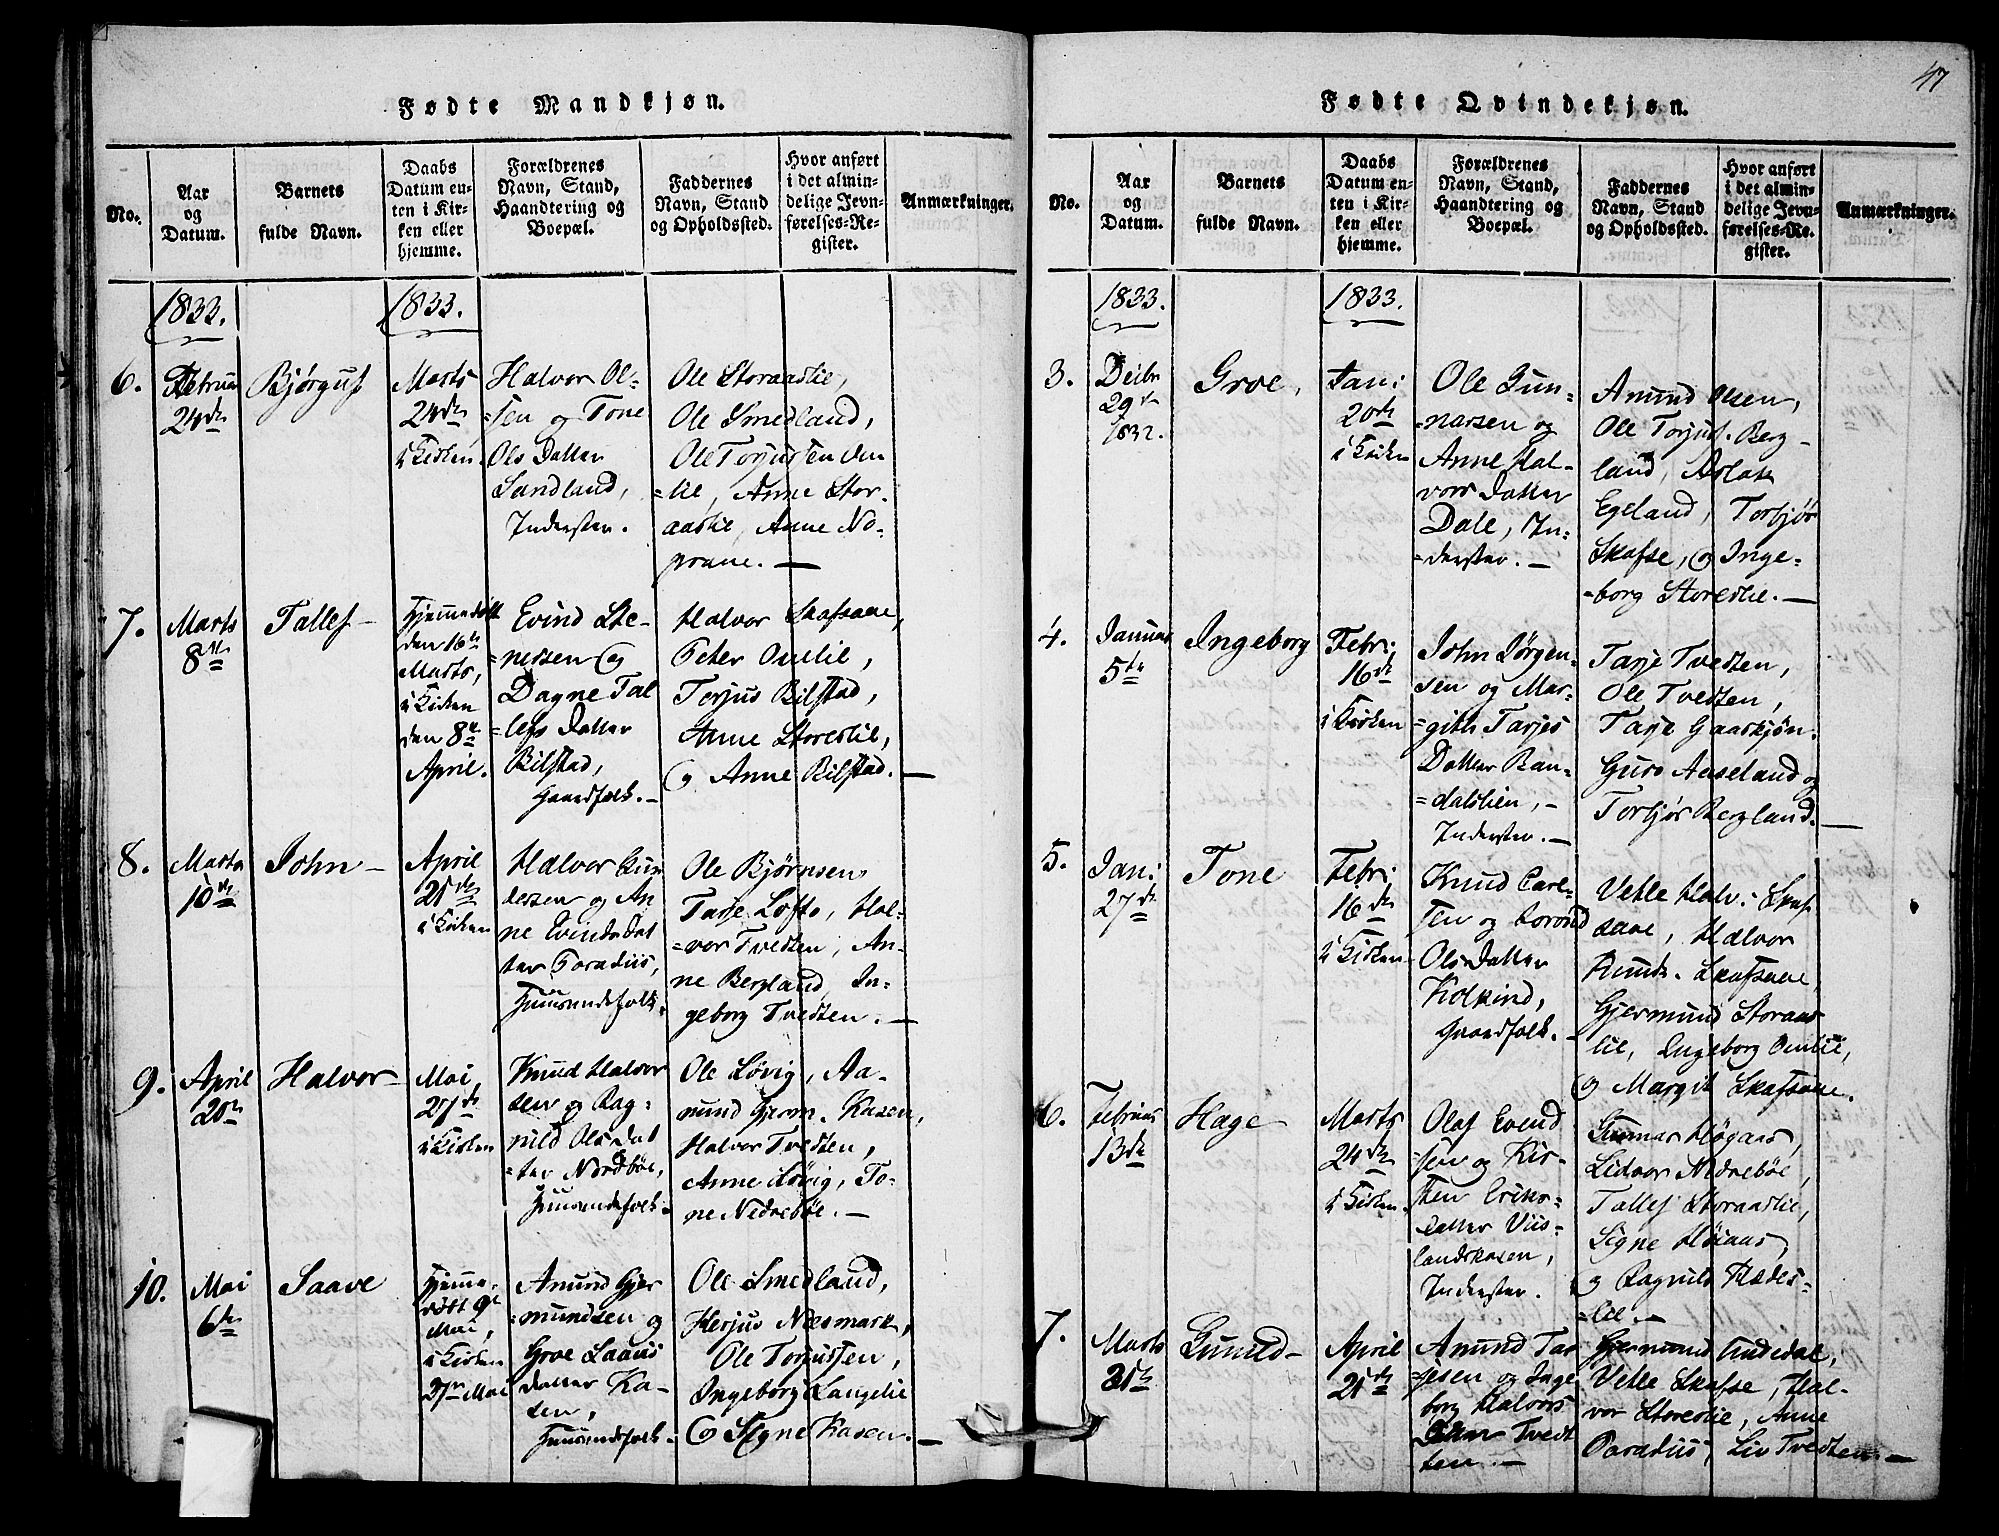 47
Fødte Mandkjøn.
No.
Aar
og
Datum.
Barnets
fulde Navn.
Daabs
Datum en-
ten i Kir-
ken eller
hjemme.
Forældrenes
Navn, Stand,
Haandtering og
Boepæl.
Faddernes
Navn, Stand
og Opholdssted.
Hvor anført
i det almin-
delige Jevn-
førelses-Re-
gister.
Anmærkninger.
1833.
1833.
6.
Februar
24de
Bjørguf
Marts
24de
i Kirken.
Halvor Ol-
=sen og Tone
Ols Datter
Sandland,
Inderster.
Ole Storaaslie,
Ole Smedland,
Ole Torjussen
=lie, Anne Stor-
aaslie, Anne No-
prane. —
7.
Marts
8de
Tallef —
Hjemmedøbt
den 16de
Marts,
i Kirken
den 8de
April.
Evind Ste-
=nersen og
Dagne Tal
=lefs Datter
Bilstad,
Gaardfolk. —
Halvor Skafsaae,
Peter Omlie,
Torjus Bilstad,
Anne Storeslie,
og Anne Bilstad. —
8.
Marts
10de
John —
April
21de
i Kirken
Halvor Gun
dersen og An
ne Evinds Dat
ter Paradiis,
Huusmandsfolk.
Ole Bjørnsen
Tarje Lofto, Hal-
=vor Tvedten, An-
ne Bergland, In-
geborg Tvedten. —
9.
April
20de
Halvor —
Mai,
27de
i Kirken
Knud Halvor
sen og Rag-
nild Ols Dat
=ter Nordbøe,
Huusmandsfolk.
Ole Løvig, Aa-
mund Gjerm. Kasen,
Halvor Tvedten,
Anne Løvig, To-
ne Nedrebøe. —
10.
Mai
6te
Saave
Hjemme-
døbt 9de
Mai,
i Kirken
27de Mai
Amund Gjer
=mundsen og
Groe Saavis
datter Ka-
sen,
Huusmandsfolk.
Ole Smedland,
Herjus Næsmark,
Ole Torjussen,
Ingeborg Langelie
og Signe Kasen. —
Fødte Qvindekjøn.
No.
Aar
og
Datum.
Barnets
fulde Navn.
Daabs
Datum en-
ten i Kir-
ken eller
hjemme.
Forældrenes
Navn, Stand,
Haandtering og
Boepæl.
Faddernes
Navn, Stand
og Opholdssted.
Hvor anført
i det almin-
delige Jevn-
førelses-Re-
gister.
Anmærkninger.
1833.
1833.
3.
Decbr
29de
1832.
Groe,
Jan:
20de
i Kirken
Ole Gun-
=narsen og
Anne Hal-
vors Datter
Dale, In-
=derster. —
Amund Olsen,
Ole Torjus. Berg-
land, Aslak
Egeland, Torbjør
Skafse, og Inge-
=borg Storeslie. —
4.
Januar
5te
Ingeborg
Febr:
16de
i Kirken
John Jørgen-
sen og Mar-
=gith Tarjes
Datter Ran-
=dalslien, —
Inderster. —
Tarje Tvedten,
Ole Tvedten,
Tarje Gaaskjøn.
Guro Aaseland og
Torbjør Bergland. —
5.
Jan:
27de
Tone
Febr:
16de
i Kirken
Knud Carl-
sen og
Ols Datter
Kolkind,
Gaardfolk. —
Vetle Halv: Skaf
saae, Halvor
Knuds. Skafsaae,
Gjermund Storaas
lie, Ingeborg Omlie,
og Margit Skafsaae.
6.
Februar
13de
Hage
Marts
24de
i Kirken
Olaf Evend
=sen og Kir-
sten Eriks-
Datter Viis-
landskasen,
Inderster.
Gunnar Høgaas,
Lidvor Nedrebøe,
Tallef Storaaslie,
Signe Høiaas,
og Ragnild Flædes-
=lie. —
7.
Marts
31te
Gunild —
April
21de
Amund Tar
jesen og Inge
borg Halvors
Datter Tvedt
ten. —
Gjermund Andedal,
Vetle Skafse, Hal-
vor Storeslie, Anne
Paradiis, Liv Tvedten. —